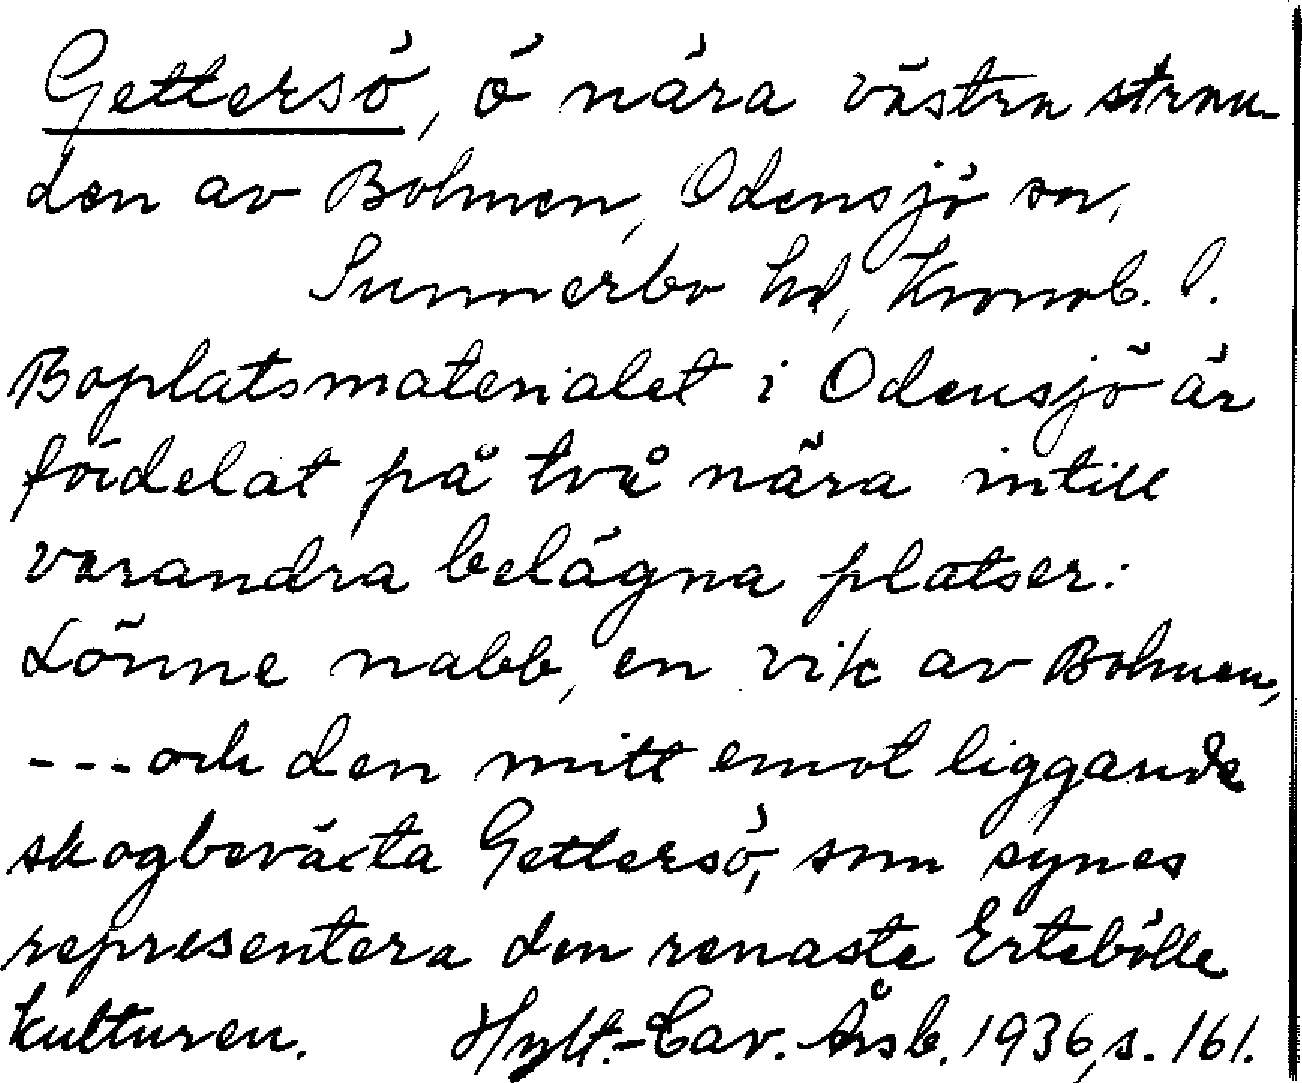 Gettersö, ö nära västra stran-
den av Bolmen, Odensjö sn,
Sunnerbo hd, Kronob. l.
Boplatsmaterialet i Odensjö är
fördelat på två nära intill
varandra belägna platser:
Lönne nabb, en vik av Bolmen,
---och den mitt emot liggande
skogbeväxta Gettersö, som synes
representera den renaste Ertebölle
kulturen. Hylt.-Cav. Årsb. 1936, s. 161.